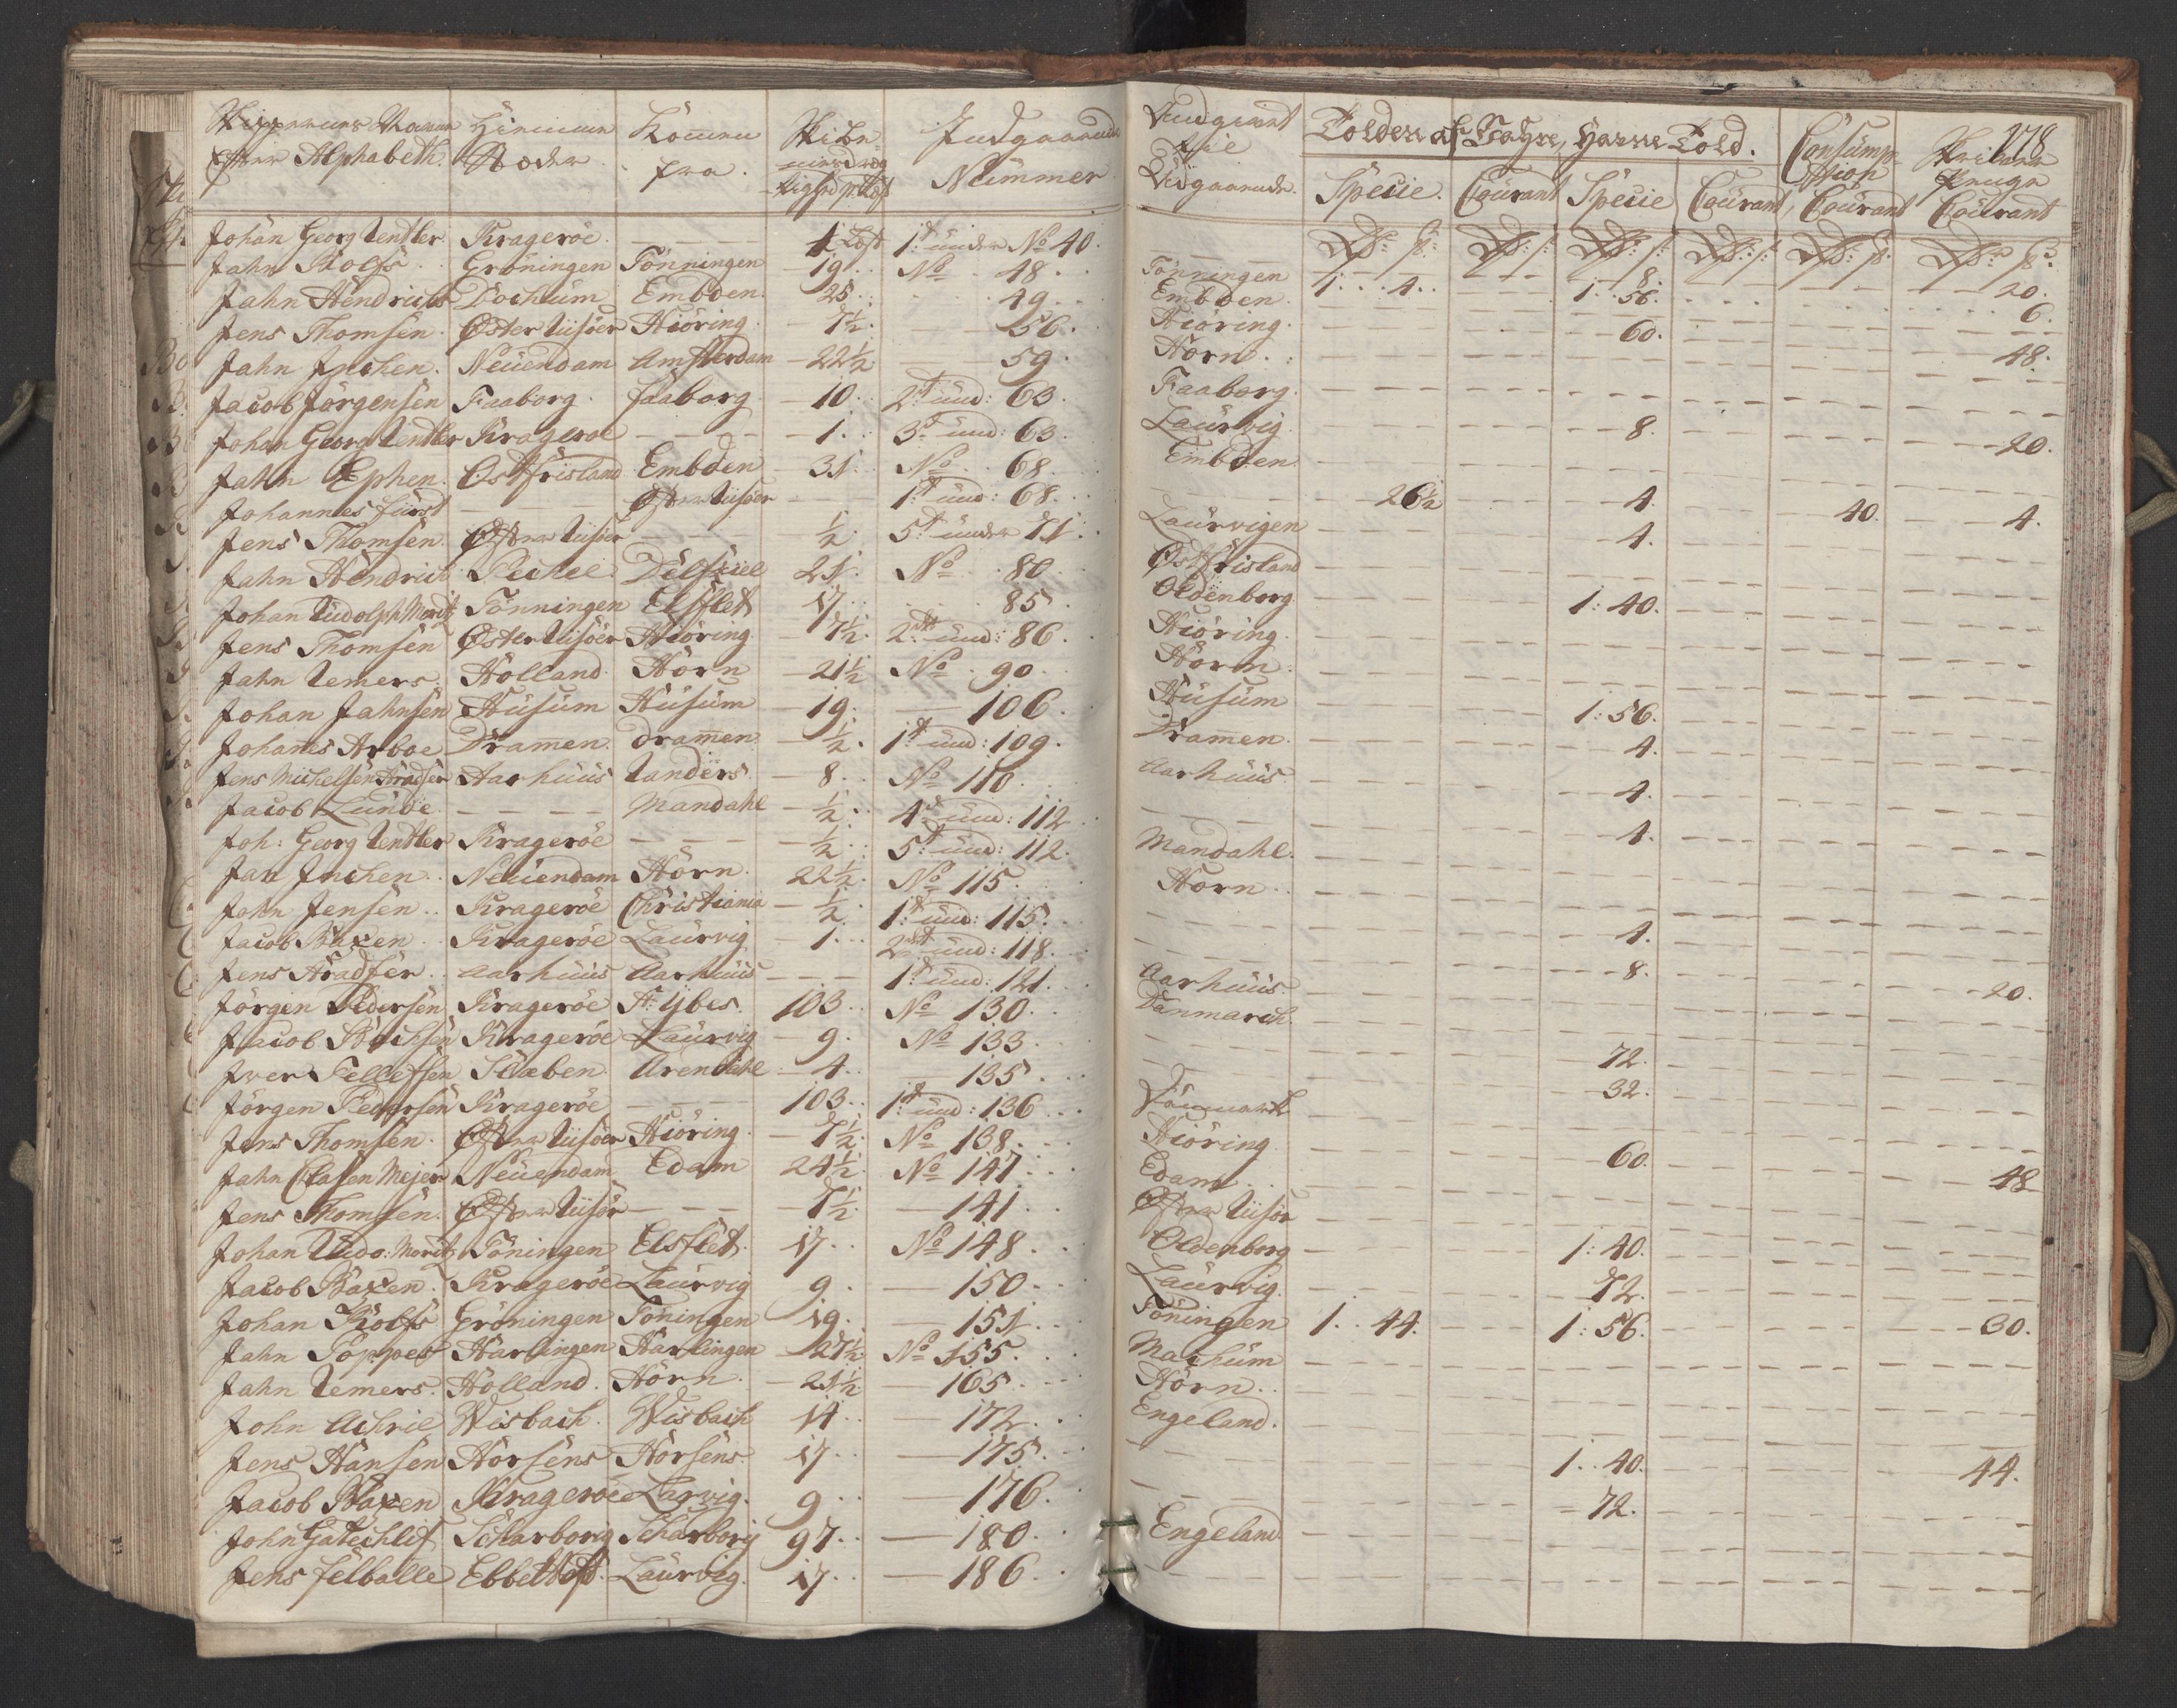 Skippernes Navne Hiemme Komen Skibe Indgaaende
Efter Alphabeth. Stæder fra Nummer
Johan Georg Rentler Kragerøe — — — 1 Læst 1st under No 40.
Jahn Rolfs Gröningen Tönningen 19 No 48.
Jahn Hendrichs Dochum Embden 25 49.
Jens Thomsen Øster Riisöer Hiöring 7½ 56.
Jahn Jnchen. Neuendam Amsterdam 22½ 59.
Jacob Jörgensen Faaborg faaborg 10. 2d und: 63.
Johan Georg Rentler Kragerøe — — — 1. 3d und: 63.
Jahn Ephen. Ostfrisland Embden 31. No 68.
Johannes fürst — — — Øster Riisöer — 1st und: 68.
Jens Thomsen. Øster Riisöer — — — ½ 5t under 71.
Jahn Hendrich Pechel Delfziel 21. No 80
Johan Rudolph Moritz Tönningen Elsflet 17 85
Jens Thomsen Øster Riisöer Hiöring 7½ 2d und: 86.
Jahn Remers. Holland Hörn 21½ No 90.
Johan Jahnsen Husum Husum 19. 106.
Johannes Arboe Dramen dramen ½. 1st und: 109.
Jens Michelsen Aradser Aarhuus Randers. 8. No 110.
Jacob Lunde — — — Mandahl ½ 4d und: 112
Joh: Georg Rentler Kragerøe — — — ½ 5t und: 112.
Jan Jnchen. Neuendam Hörn 22½ No 115.
John Jensen. Kragerøe Christiania ½ 1st und: 115.
Jacob Baxen Kragerøe Laurvig 1. 2d und: 118.
Jens Aradser. Aarhuus Aarhuus — — 1st und: 121.
Jörgen Pedersen Kragerøe St: Ybes. 103 No 130.
Jacob Bachsen Kragerøe Laurvig 9. No 133
Jver Tellefsen Arendahl 4. 135.
Jörgen Pedersen Kragerøe — — — 103. 1st und: 136
Jens Thomsen. Øster Riisöer Hiöring 7½ No 138.
Jahn Clasen Mejer Neuendam Edam 24½ No 147.
Jens Thomsen. Øster Riisöer — — — 7½ — 141.
Johan Rudo: Moritz Töningen Elsflet. 17. No 148.
Jacob Baxen. Kragerøe Laurvig 9. — 150.
Johan Rolfs Gröningen Töningen 19. — 151.
Jahn Poppes Harlingen Harlingen 27½ No 155.
Jahn Remers. Holland. Hörn. 21½ 165.
John Achril Wisbach. Wisbach 14. — 172.
Jens Hansen Horsens Horsens 17 — 175.
Jacob Baxen Kragerøe Larvig. 9 — 176.
John Gatechlif Scharborg Scharborg 97. — 180.
Jens felballe Ebbeltoft. Laurvig. 17. — 186.
178
Udgaaende. Tolden af Consumption
Specie. Courant Specie Courant, Courant Courant
Tönningen 1. 4. — — 1. 8. — — — 20.
Embden 56. 6.
Hiöring. 60. 48.
Horn.
Faaborg.
Laurvig. 8. 20.
Embden.
26½ 4. 40. 4.
Laurvigen 4.
Østfrisland
Oldenborg 1: 40.
Hiöring.
Horn.
Husum 1: 56.
Dramen. 4.
Aarhuus. 4.
4.
Mandahl.
Horn.
4.
8.
Aarhuus. 20.
Danmarch
72.
32.
Danmark
Hiöring 60. 48
Edam
Øster Riisör
Oldenborg 1: 40.
Laurvig. 72.
Töningen 1. 44. 1: 56. 30.
Machum
Hörn.
Engeland.
1. 40. 44.
72.
Engeland